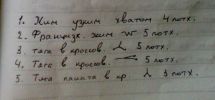 1. Жим узким хватом 4 подх.
2. Французк. жим 5 подх.
3. Тяга в кросов. 5 подх.
4. Тяга в кросов. 5 подх.
5. Тяга в кр. 3 подх.